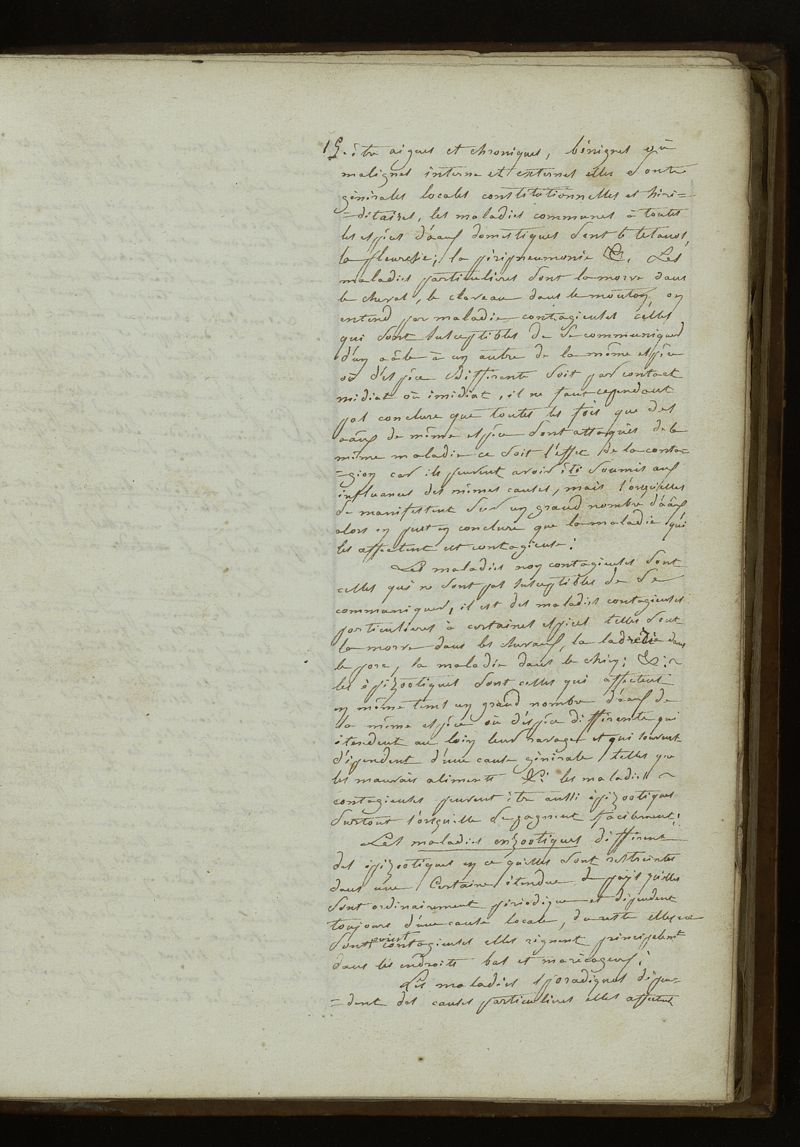 15. être aigues et chroniques, bénignes où
malignes interne et externes elles sont
générales locales constitutionnelles et héré=
=ditaires, les maladies communes à toutes
les espèces d'aãux domestiques sont le tetanos,
la pleuresie, la péripneumonie &. Les
maladies particulières sont la morve dans
le cheval, le claveau dans le mouton, on
entend par maladie contagieuses celles
qui sont susceptibles de se communiquer
d'un aãl à un autre de la même espèce
où d'espèce différente soit par contact
médiat où imédiat, il ne faut cependant
pas conclure que toutes les fois que des
aãux de même espèce sont attaqués de la
même maladie ce soit l'effet de la conta=
=gion car ils peuvent avoir été soumis aux
influences des mêmes causes, mais l'orsqu'elles
se manifestent sur un grand nombre d'aãux
alors on peut en conclure que la maladie qui
les affectent est contagieuse.
Les maladies non contagieuses sont
celles qui ne sont pas susceptibles de se
communiquer, il est des maladies contagieuses
particulieres à certaines espèces telles sont
la morve dans les chevaux, la ladrérie dans
le porc, la maladie dans le chien; &.
les épizootiques sont celles qui affectent
en même tems un grand nombre d'aãux de
la même espèce où d'éspèce différente qui
étendent au loin leur ravages et qui souvent
dépendent d'une cause générale telles que
les mauvais aliments &. les maladies
contagieuses peuvent être aussi épizootiques
surtout l'orsquelle se gagnent facilement.
Les maladies enzootiques différent
des épizootiques en ce quelles sont restreintes
dans une certaine étendue de pays quelles
sont ordinairement périodique et dépendent
toujours d'une cause locale, du reste elles
sont contagieuses elles règnent principalemt
dans les endroits bas et marécageux.
Les maladies sporadiques dépen=
=dent des causes particulières elles affectent